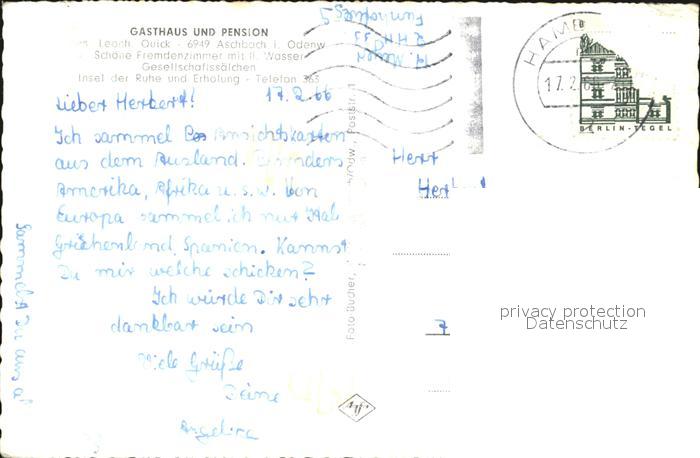 GASTHAUS UND PENSION
Leonh. Quick - 6949 Aschbach i. Odenw
Schöne Fremdenzimmer mit fl. Wasser
Gesellschaftssälchen
Insel der Ruhe und Erholung - Telefon 363
Lieber Herbert! 17.2.66
Ich sammel Ansichtskarten
aus dem Ausland. Besonders
Amerika, Afrika u.s.w. Von
Europa sammel ich nur Itali
Griechenland, Spanien. Kannst
Du mir welche schicken?
Ich würde Dir sehr
dankbar sein
Viele Grüße
Deine
Angelina
Sammelst Du auch
2 HH 53
Foto Bucher,
Poststr. 1
HAMB
17.2.6
BERLIN-TEGEL
Herr
Herb
7
privacy protection
Datenschutz